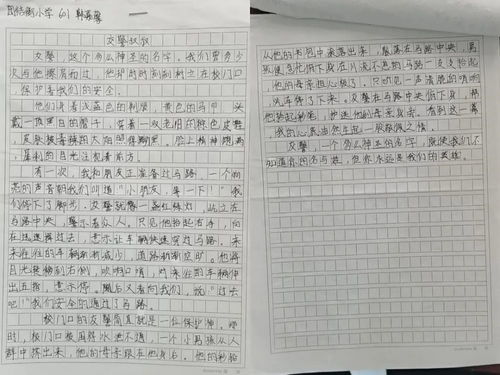 团结街小学 601
交警叔叔
交警,这个多么神圣的名字。我们曾多少
次与他擦肩而过,他时时刻刻耸立在校门口
保护着我们的安全。
他们身着浅蓝色的制服,黄色的马甲,头
戴一顶黑白的帽子,穿着一双老旧的棕色皮鞋,
皮肤被毒辣的太阳晒得黝黑,脸上精神饱满,
犀利的目光注视着前方。
有一次,我和朋友正准备过马路,一个响
亮的声音朝我们叫道:“小朋友,等一下!”我
们停下了脚步。交警就像一盏红绿灯,屹立在
马路中央,警示着众人。只见他抬起右手,向
左迅速挥过去,意示让车辆快速穿过马路,来
来往往的车辆渐渐减少,道路渐渐空旷。他将
目光转移到右侧,吹响口哨,对来往的车辆伸
出五指,意示停。随后又看向我们,说:“过去
吧!”我们安全的通过了马路。
校门口的交警简直就是一位保护神。那
时,校门口被围得水泄不通,一个小男孩从人
群中挤出来,他的母亲跟在他身后。他的彩铅
从他的书包中滚落出来,散落在马路中央,男
孩便急忙俯下身在川流不息的马路一支支捡起
他的母亲担心极了,只听见一声清脆的哨响,
汽车停了下来。交警在马路中央俯下身,帮
他拾起彩笔,护送他和母亲离去。看到这一幕
,我的心底油然生起一股敬佩之情。
交警,一个多么神圣的名字,就使我们不
知道你的名与姓,但你永远是我们的英雄。